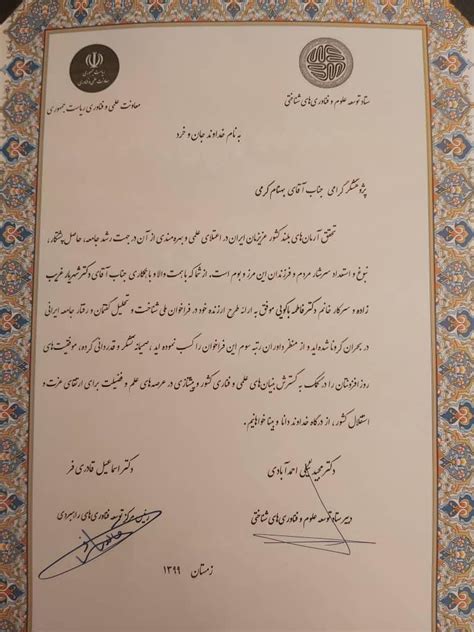 ستاد توسعه علوم و فناوری‌های شناختی
ریاست جمهوری
معاونت علمی و فناوری
معاونت علمی و فناوری ریاست جمهوری
به نام خداوند جان و خرد
پژوهشگر گرامی جناب آقای بهنام کرمی
تحقق آرمان‌های بلند کشور عزیزمان ایران در اعتلای علمی و بهره‌مندی از آن در جهت رشد جامعه، حاصل پشتکار،
نبوغ و استعداد سرشار مردم و فرزندان این مرز و بوم است. از شما که با همت والا و با همکاری جناب آقای دکتر شهریار غریب
زاده و سرکار خانم دکتر فاطمه باکویی موفق به ارائه طرح ارزنده خود در فراخوان ملی شناخت و تحلیل گفتمان و رفتار جامعه ایرانی
در بحران کرونا شده‌اید و از منظر داوران رتبه سوم این فراخوان را کسب نموده اید، صمیمانه تشکر و قدردانی کرده، موفقیت‌های
روز افزونتان را در کمک به گسترش بنیان‌های علمی و فناوری کشور و پیشتازی در عرصه‌های علم و فضیلت برای ارتقای عزت و
استقلال کشور، از درگاه خداوند دانا و بینا خواهانیم.
دکتر مجید نیلی احمدآبادی
دبیر ستاد توسعه علوم و فناوری‌های شناختی
دکتر اسماعیل قادری فر
رییس مرکز توسعه فناوری‌های راهبردی
زمستان ۱۳۹۹